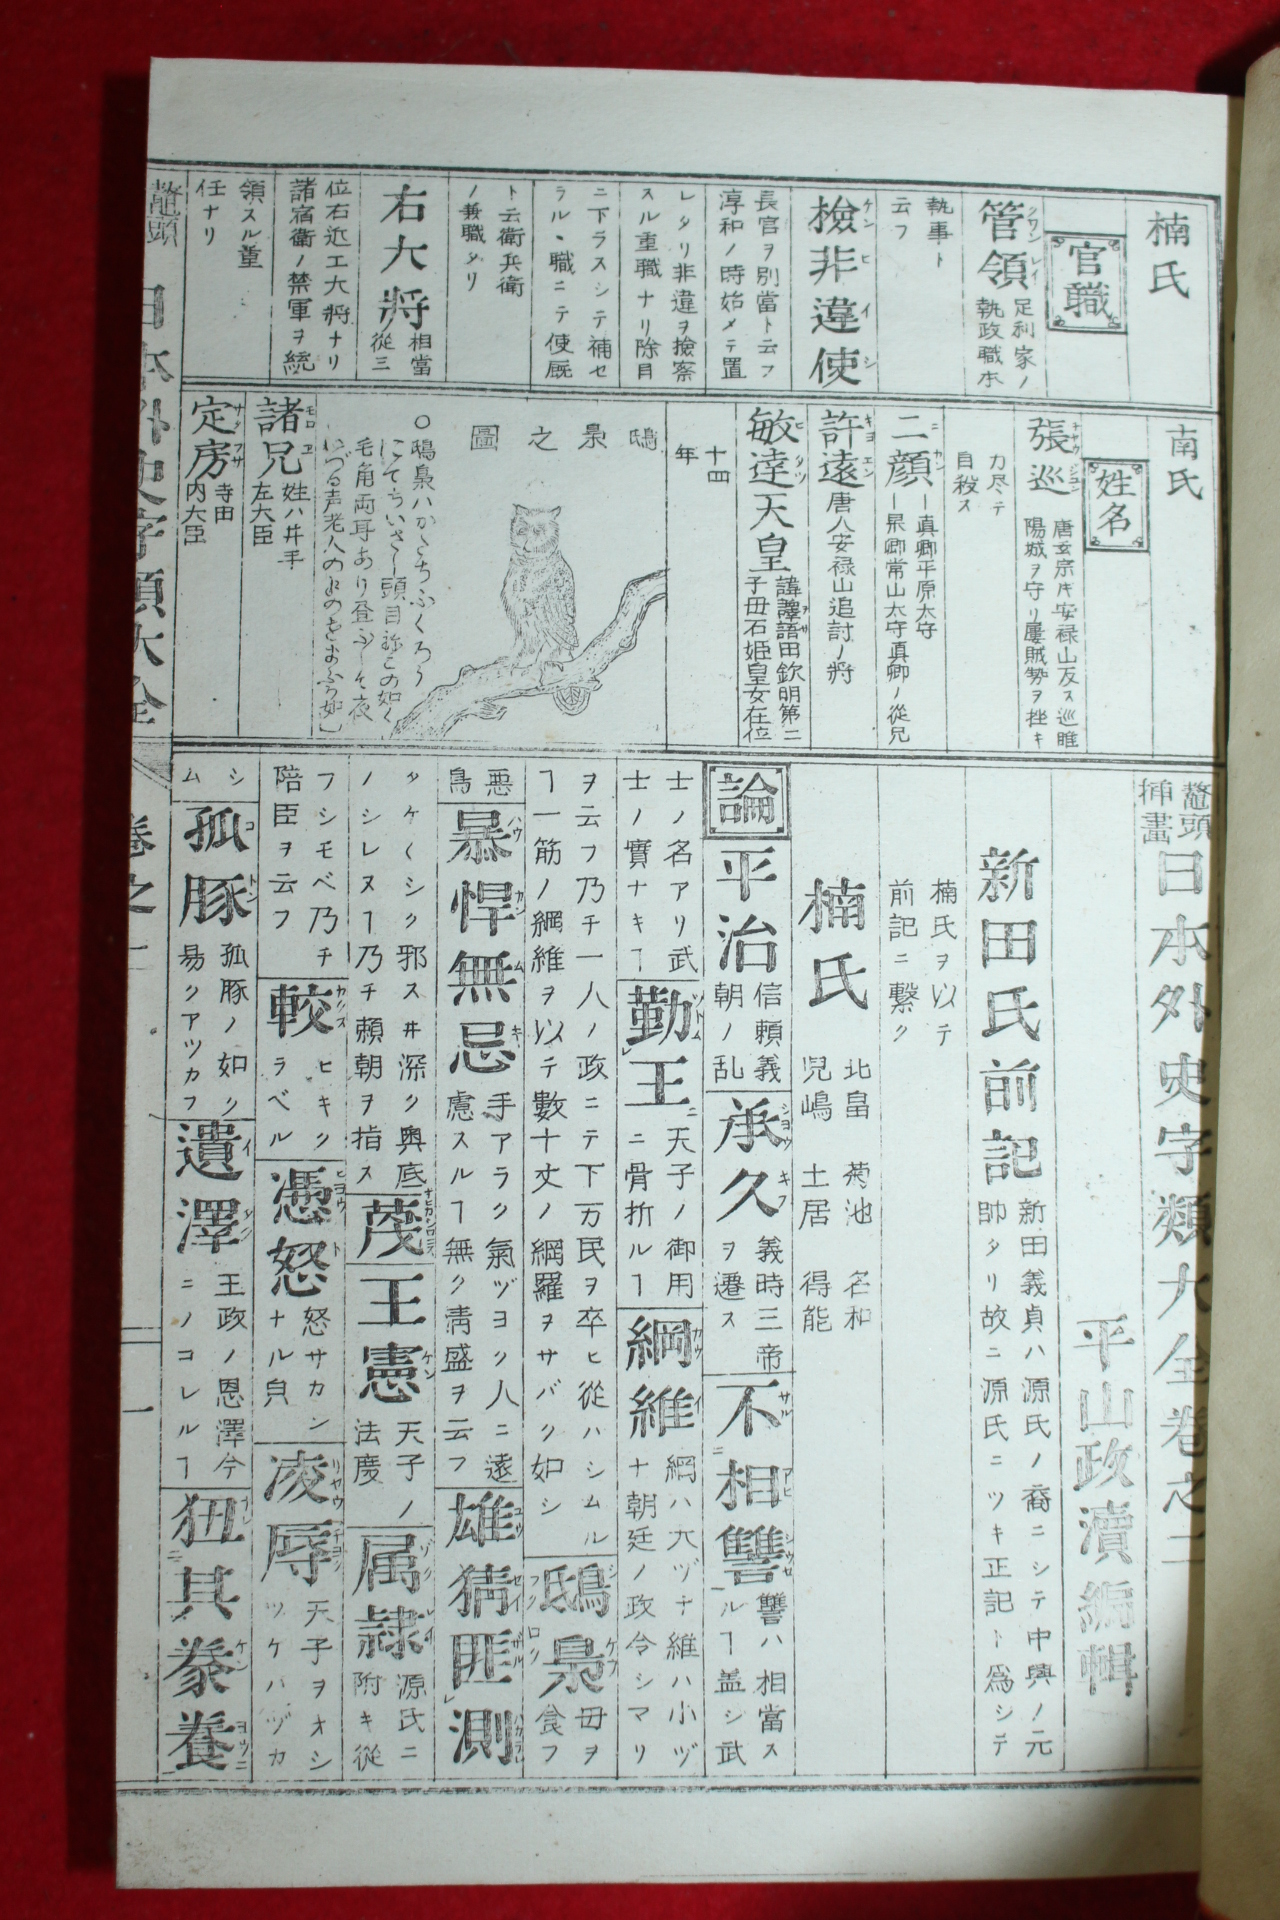 楠氏
官職
管領 足利家ノ執政職本執事ト云フ
檢非違使
長官ヲ別當ト云フ淳和ノ時始メテ置
レタリ非違ヲ撿察スル重職ナリ除目
ニ下ラスシテ補セラルヽ職ニテ使厩
ト云衛兵衛ノ兼職タリ
右大將 相當從三
位右近エ大將ナリ諸宿衛ノ禁軍ヲ統
領スル重任ナリ
南氏
姓名
張巡 唐玄宗ノキ安禄山反ス巡睢陽城ヲ守リ屢賊勢ヲ挫キ
力尽テ自殺ス
二顔 一真卿平原太守一杲卿常山太守真卿ノ從兄
許遠 唐人安禄山追討ノ將
敏達天皇 諱譯語田欽明第二子母石姫皇女在位
十四年
鴟梟之圖
諸兄 姓ハ井手左大臣
定房 寺田内大臣
鼇頭挿畫 日本外史字類大全卷之二
平山政瀆編輯
新田氏前記 新田義貞ハ源氏ノ裔ニシテ中興ノ元帥タリ故ニ源氏ニツキ正記ト爲シテ
楠氏ヲ以テ前記ニ繋ク
楠氏 北畠 菊池 名和 児嶋 土居 得能
論 平治 信頼義朝ノ乱 承久 義時三帝ヲ遷ス 不相讐 讐ハ相當スルヿ盖シ武
士ノ名アリ武士ノ實ナキヿ 勤王 天子ノ御用ニ骨折ルヿ 綱維 綱ハ大ヅナ維ハ小ヅナ朝廷ノ政令シマリ
ヲ云フ乃チ一人ノ政ニテ下万民ヲ卒ヒ從ハシムルヿ一筋ノ綱維ヲ以テ數十丈ノ網羅ヲサバク如シ 鴟梟 毋ヲ食フ
悪鳥 暴悍無忌 手アラク氣ヅヨク人ニ遠慮スルヿ無ク清盛ヲ云フ 雄猜匪測
タケ〱シク邪スヰ深ク奥底ノシレヌヿ乃チ頼朝ヲ指ス 蔑 王憲 天子ノ法度 属隷 源氏ニ附キ從
フシモベ乃チ陪臣ヲ云フ 較 ヒキクラベル 憑怒 怒サカンナル皃 凌辱 天子ヲオシツケハヅカ
シム 孤豚 孤豚ノ如ク易クアツカフ 遺澤 王政ノ恩澤今ニノコレルヿ 狃其豢養
鼇頭 日本外史字類大全 卷之二 一